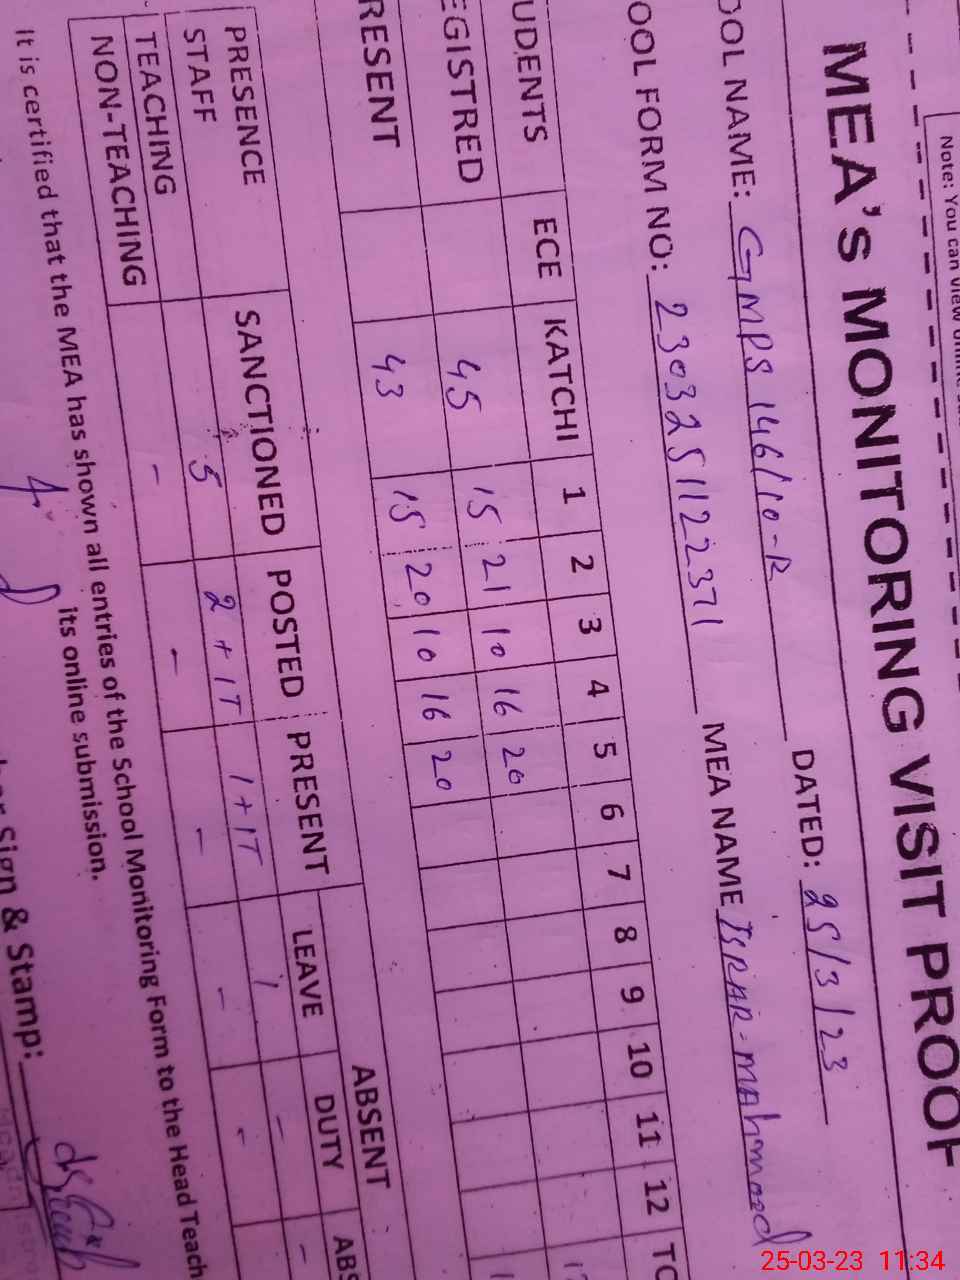 Note: You can view
MEA's MONITORING VISIT PROOF
OOL NAME: GMPS 146/10-R DATED: 25/3/23
OOL FORM NO: 2303251122371 MEA NAME ISRAR-MAhmood
UDENTS ECE KATCHI 1 2 3 4 5 6 7 8 9 10 11 12 TO
EGISTRED 45 15 21 10 16 20
RESENT 43 15 20 10 16 20
PRESENCE SANCTIONED POSTED PRESENT ABSENT
STAFF LEAVE DUTY ABS
TEACHING 5 2+1T 1+1T 1 - -
NON-TEACHING - - - - -
It is certified that the MEA has shown all entries of the School Monitoring Form to the Head Teach
its online submission.
Sign & Stamp:
25-03-23 11:34